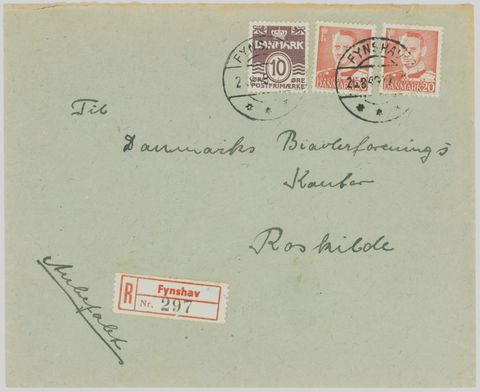 FYNSHAV
DANMARK
10
ØRE ØRE
POSTFRIMÆRKE
DANMARK
FYNSHAV
24.8.49
DANMARK 20
Til
Danmarks Biavlerforenings
Kontor
Roskilde
Anbefalet
R Fynshav
Nr. 297